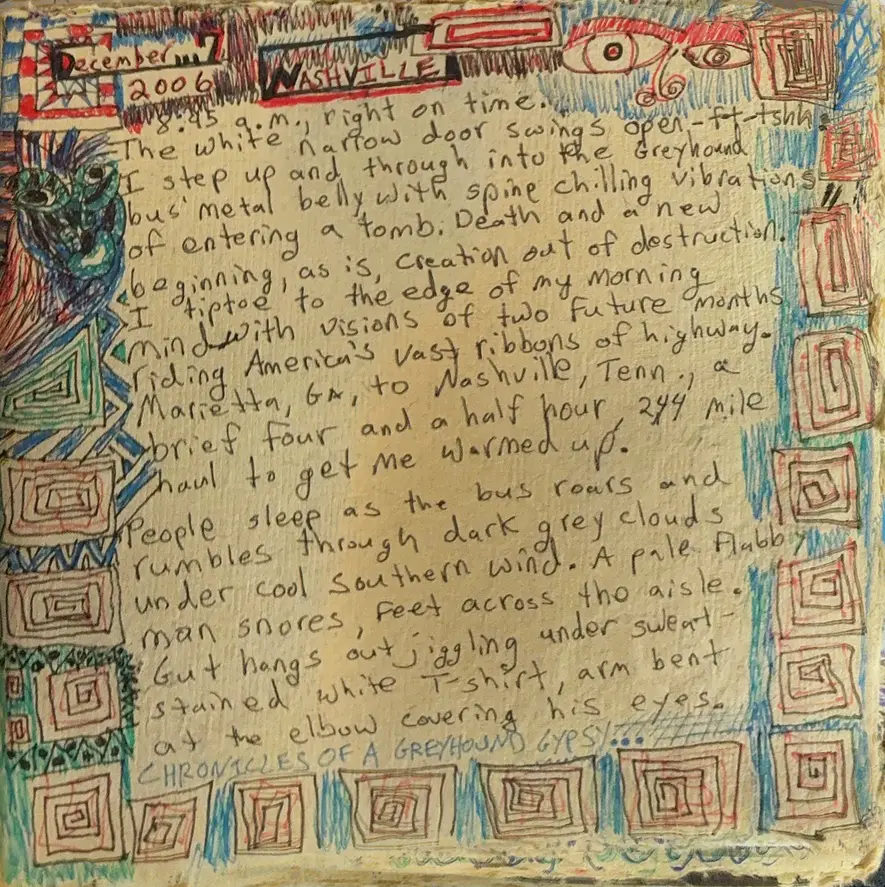 December... 7
2006
NASHVILLE
8:45 a.m., right on time...
The white narrow door swings open-ft-tshh.
I step up and through into the Greyhound
bus' metal belly with spine chilling vibrations
of entering a tomb. Death and a new
beginning, as is, creation out of destruction.
I tiptoe to the edge of my morning
mind with visions of two future months
riding America's vast ribbons of highway.
Marietta, GA, to Nashville, Tenn., a
brief four and a half hour, 244 mile
haul to get me warmed up.
People sleep as the bus roars and
rumbles through dark grey clouds
under cool southern wind. A pale flabby
man snores, feet across the aisle.
Gut hangs out jiggling under sweat-
stained white T-shirt, arm bent
at the elbow covering his eyes.
CHRONICLES OF A GREYHOUND GYPSY...